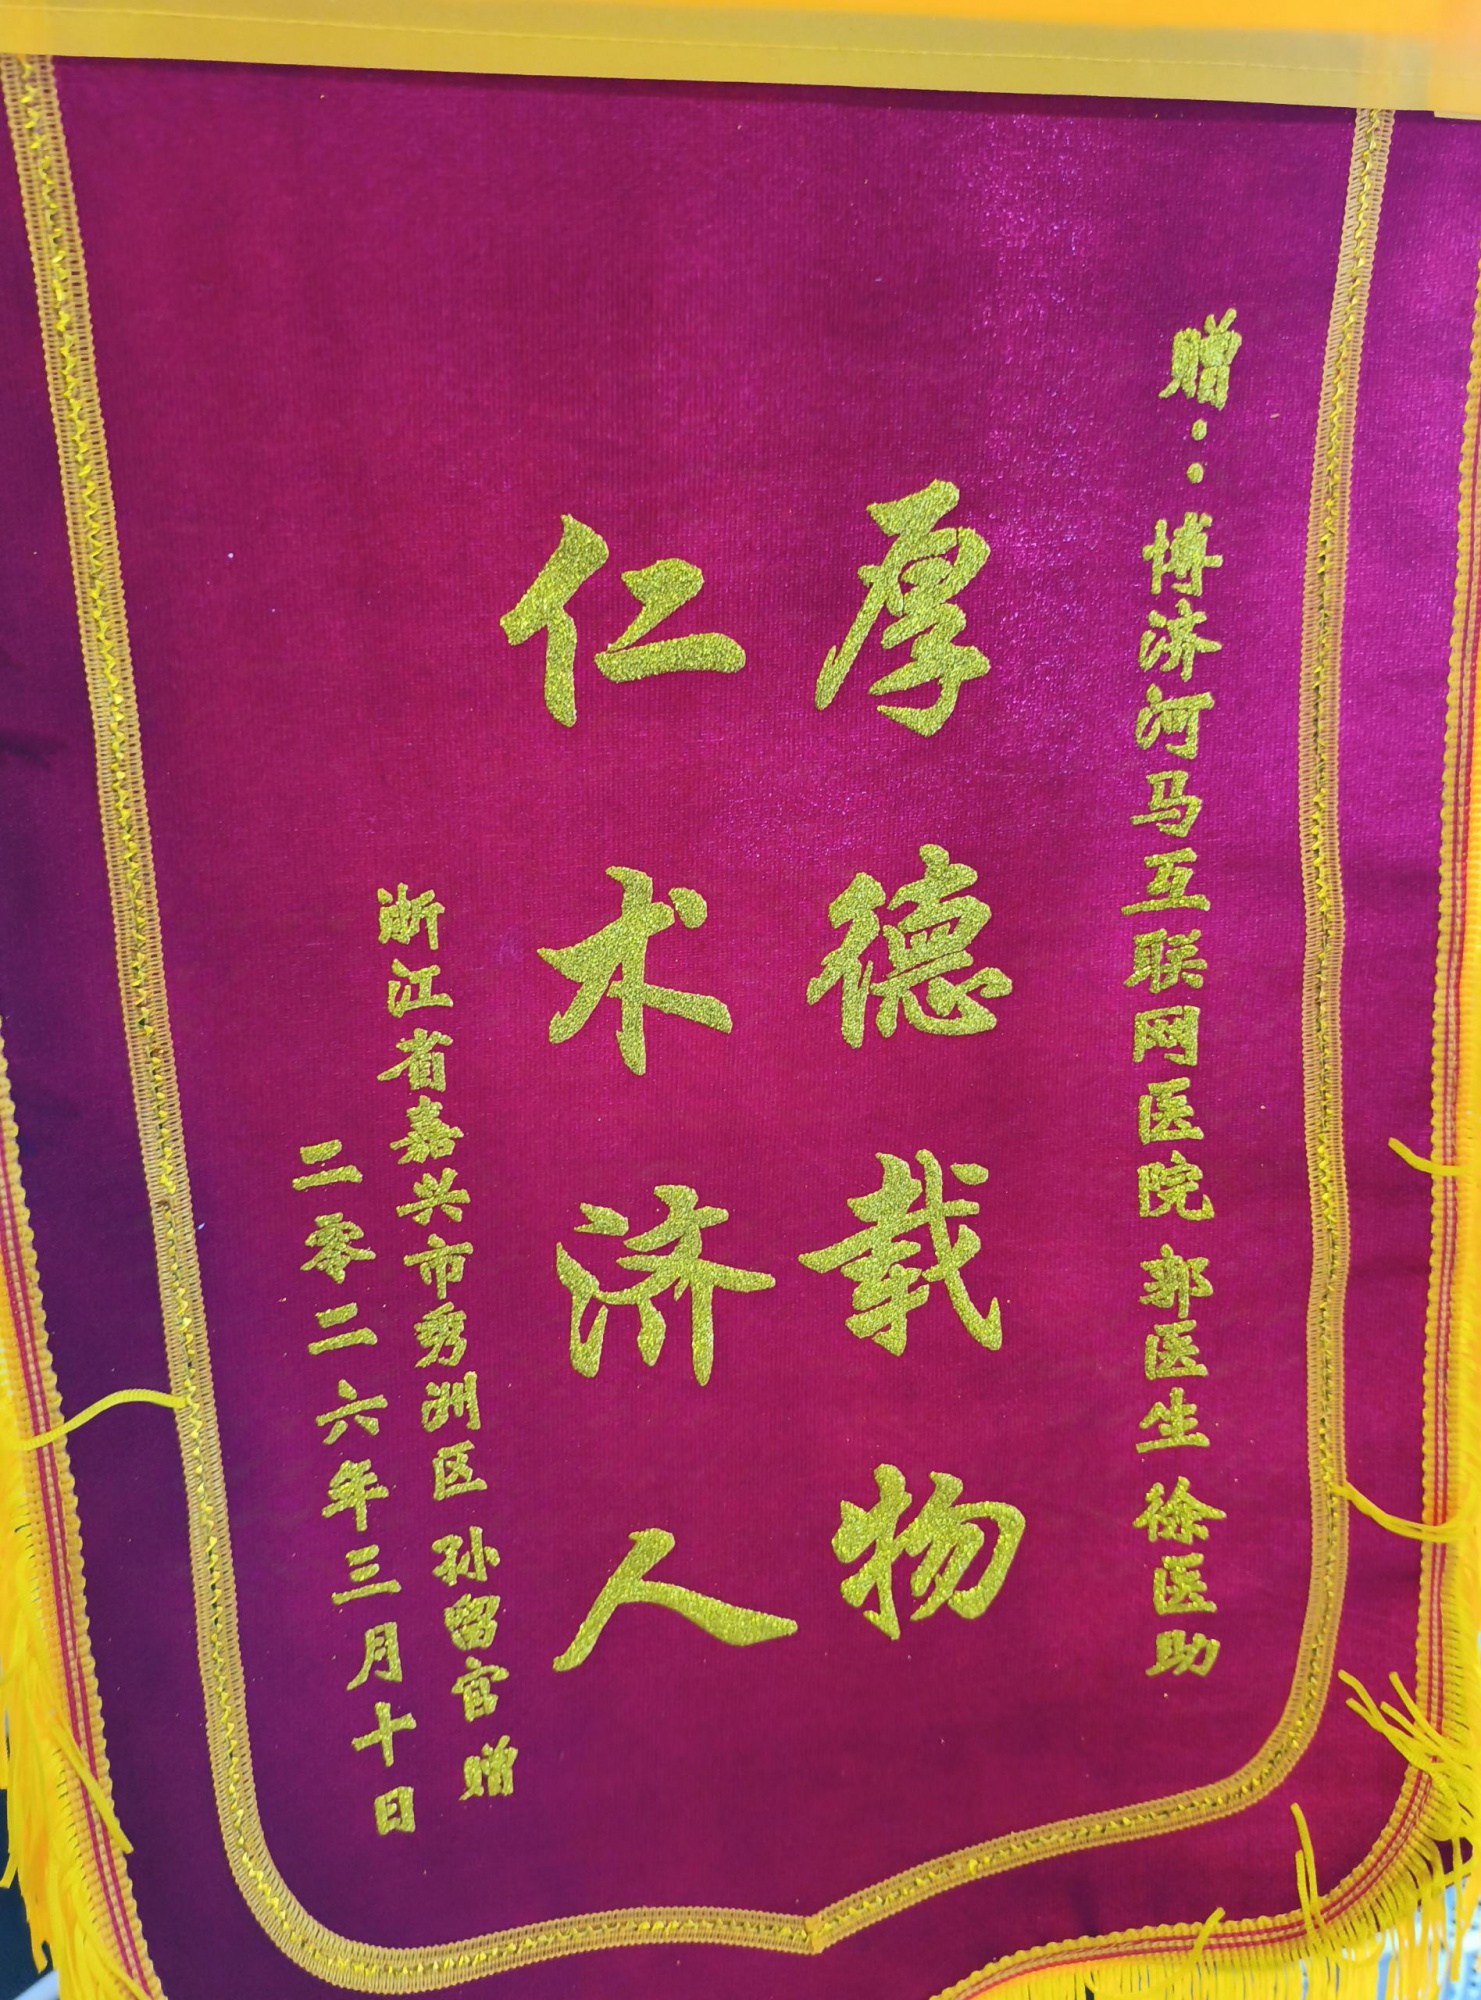 赠：博济河马互联网医院 郭医生 徐医助
厚德载物
仁术济人
浙江省嘉兴市秀洲区 孙留官 赠
二零二六年三月十日